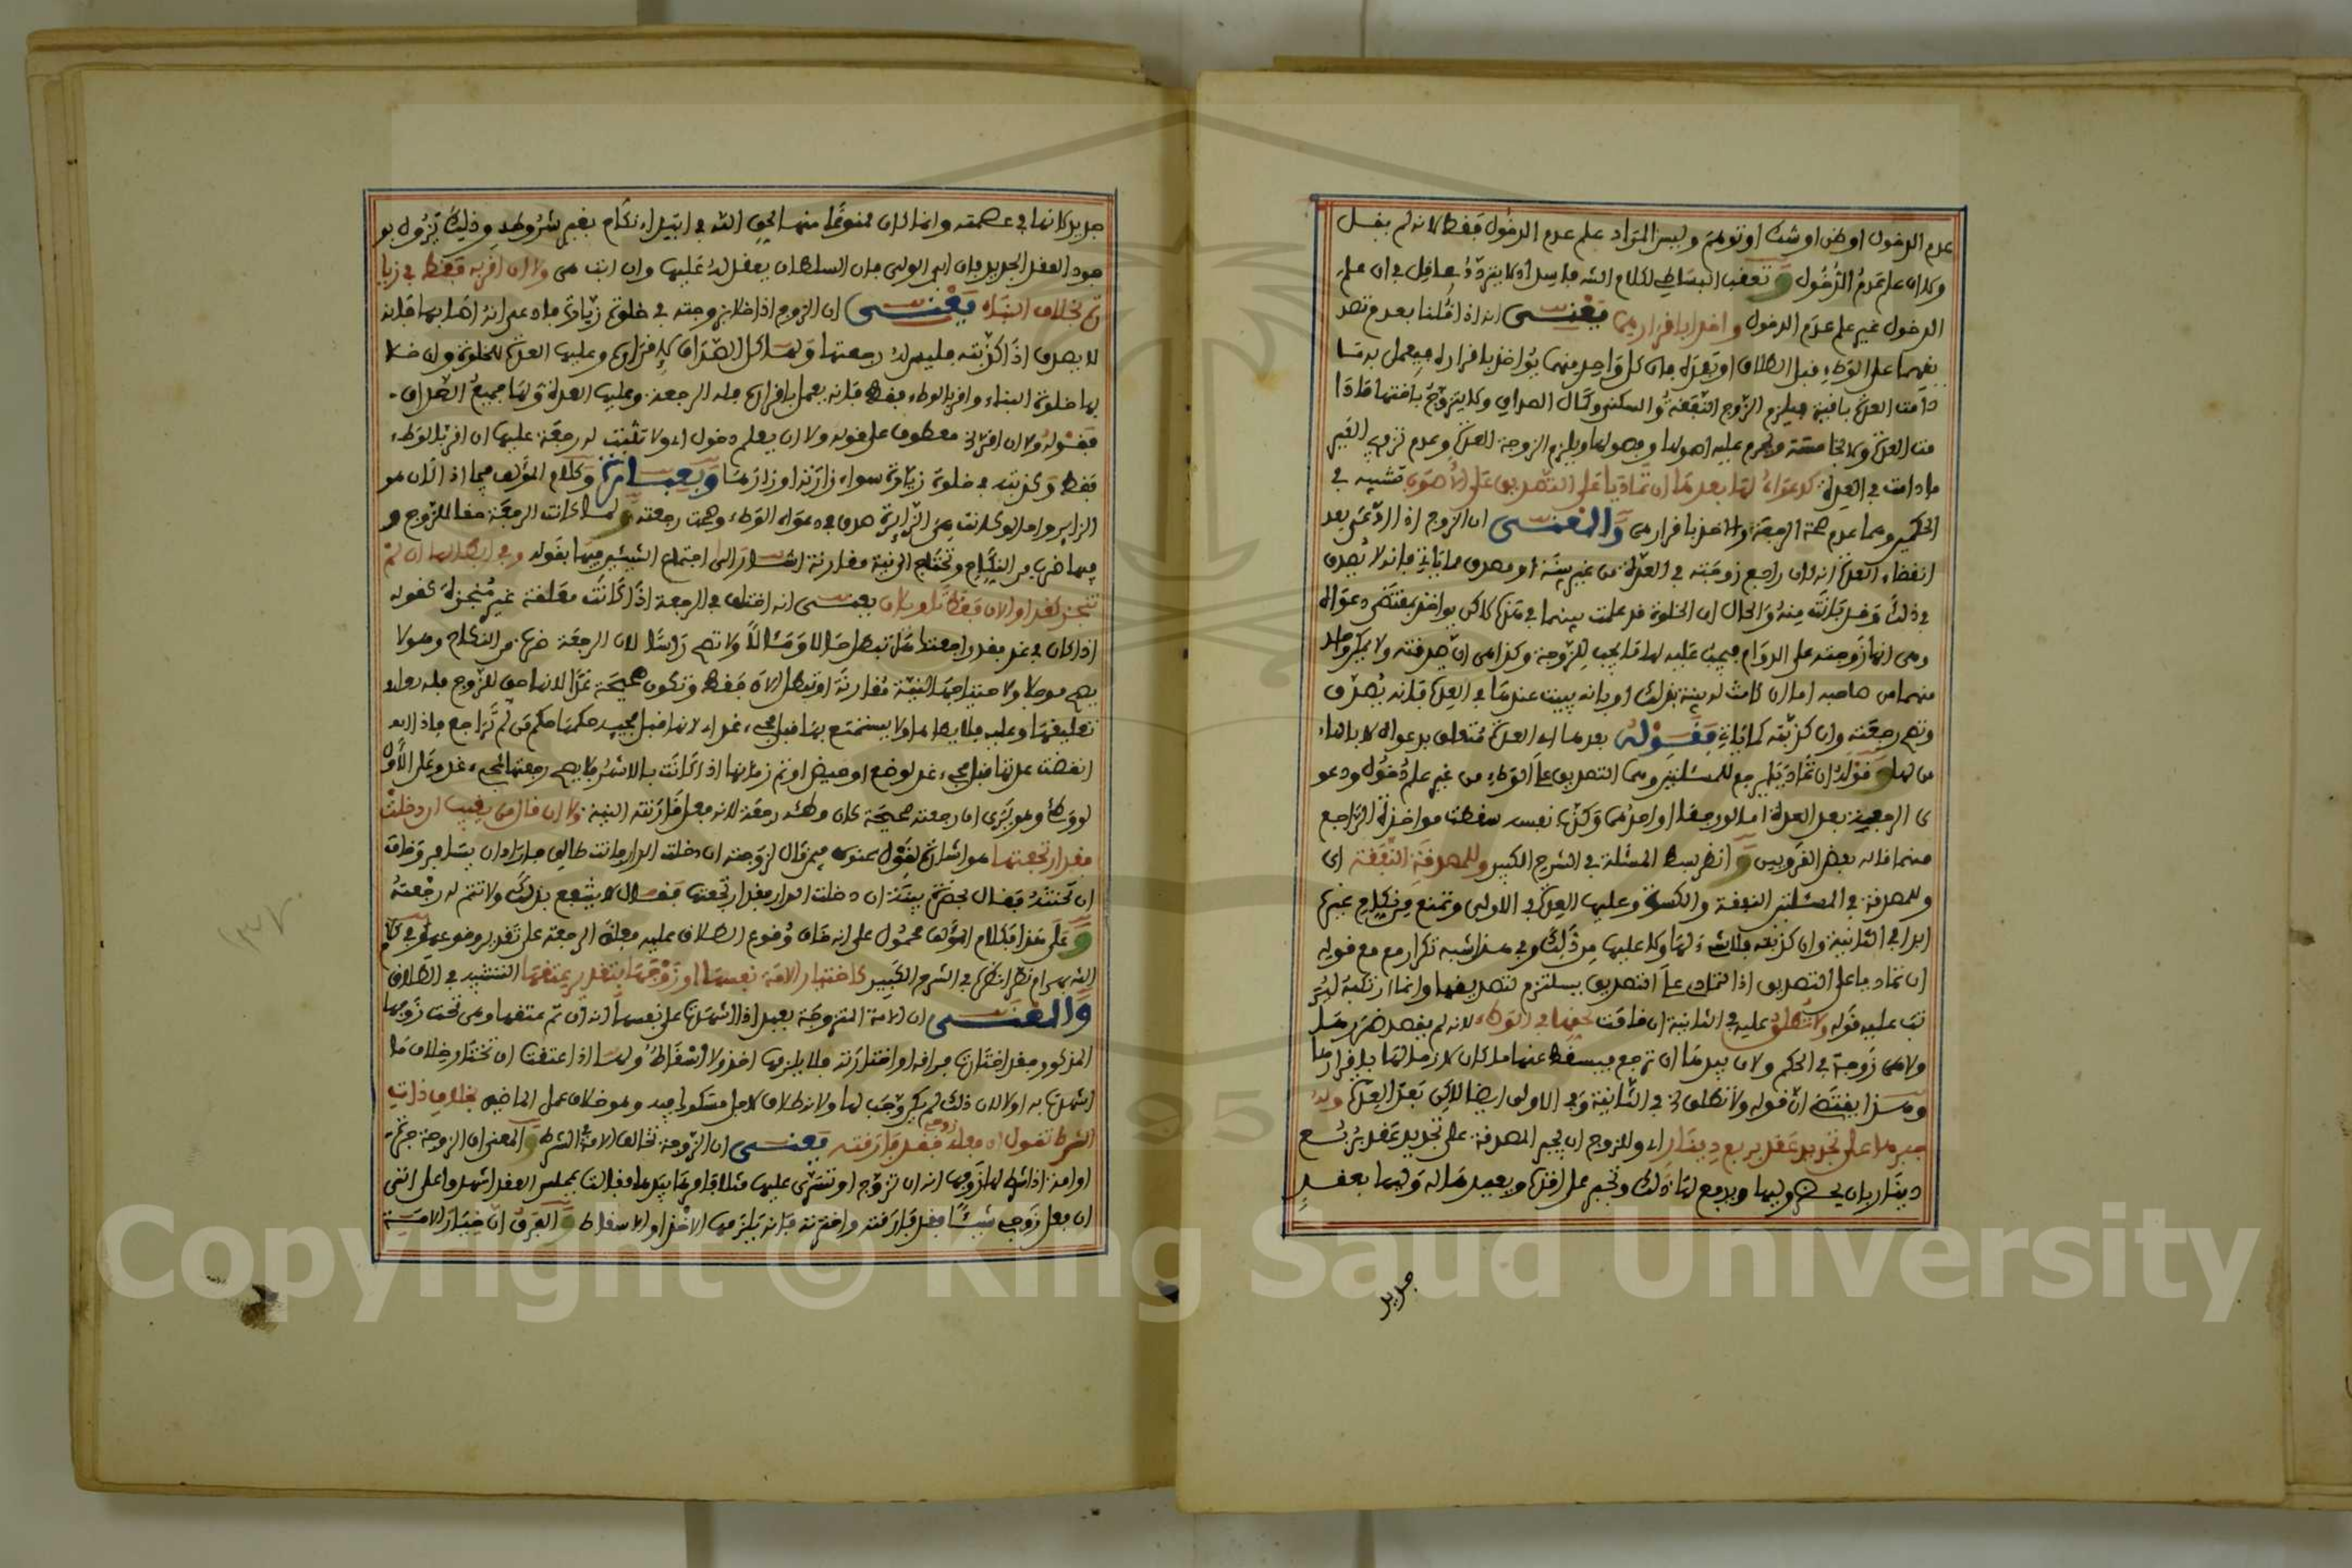 عدم الدخول او ظن او شك او توهم وليس المراد علم عدم الدخول فقط لانه لم يقل
وكان علم عدم الدخول وتعقب البساطي لكلام الشه فاسد اذ لا يتردد عاقل في ان علم
الدخول غير علم عدم الدخول واخذا باقرارهما يعني انه اذا قلنا بعدم تصد
يقهما على الوطء قبل الطلاق او بعده فان كل واحد منهما يؤاخذ باقراره فيعمل به ما
دامت العدة باقية فيلزم الزوج النفقة والسكنى وكمال الصداق ولا يتزوج باختها ما دا
مت العدة ولا بخامسة ويحرم عليه اصولها وفصولها ويلزم الزوجة العدة وعدم تزويج الغير
ما دامت في العدة كدعواه لها بعدها ان تماديا على التصديق على الاصوب تشبيه في
الحكمين وهما عدم صحة الرجعة والاخذ باقرارهما والمعنى ان الزوج اذا ادعى بعد
انقضاء العدة انه كان راجع زوجته في العدة من غير بينة او مصدق مما ياتي فانه لا يصدق
في ذلك وقد بانت منه والحال ان الخلوة قد علمت بينهما لكن يؤاخذ بمقتضى دعواه
وهي انها زوجته على الدوام فيجب عليه لها ما يجب للزوجة وكذا هي ان صدقته ولا يمكن واحد
منهما من صاحبه اما ان كانت له بينة بذلك او بانه يبيت عندها في العدة فانه يصدق
وتصح رجعته وان كذبته كما ياتي فقوله بعدها اي العدة متعلق بدعواه لا بالهاء
من لها وقوله ان تماديا يرجع للمسئلتين وهما التصديق على الوطء من غير علم دخول ودعو
ى الرجعة بعد العدة اما لو رجعا او احدهما وكذب نفسه سقطت مواخذة الراجع
منهما قاله بعض القرويين وانظر بسط المسئلة في الشرح الكبير وللمصدقة النفقة اي
وللمصدقة في المسئلتين النفقة والكسوة وعليها العدة في الاولى وتمنع من نكاح غيره
ابدا في الثانية وان كذبته فلا شيء لها ولا عليها من ذلك وفي هذا شبه تكرار مع قوله
ان تماديا على التصديق اذ التمادي على التصديق يستلزم تصديقها وانما ارتكبه ليرَ
تب عليه قوله ولا تطلق عليه في الثانية ان قامت بحقها في الوطء لانه لم يقصد ضررها
ولا هي زوجة في الحكم ولان بيدها ان ترجع فيسقط عنها ما كان لازما لها باقرارها
وهذا يقتضي ان قوله ولا تطلق الخ في الثانية وفي الاولى ايضا لكن بعد العدة وله
جبرها على تجديد عقد بربع دينار اي وللزوج ان يجبر المصدقة على تجديد عقد بربع
دينار بان يحضر وليها ويدفع لها ذلك وتجبر على اقله ويعيدها له وليها بعقد
جديد
جديد لانها في عصمته وانما كان ممنوعا منها لحق الله في ابتداء نكاح بغير شروطه وذلك يزول بو
جود العقد الجديد فان ابى الولي فان السلطان يعقد له عليها وان ابت هي ولا ان اقر به فقط في زيا
رة بخلاف البناء يعني ان الزوج اذا خلا بزوجته في خلوة زيارة فادعى انه اصابها فانه
لا يصدق اذا كذبته فليس له رجعتها ولها كل الصداق لاقراره وعليها العدة للخلوة وان خلا
بها خلوة البناء واقر بالوطء فقط فانه يعمل باقراره فله الرجعة وعليها العدة ولها جميع الصداق
فقوله ولا ان اقر الخ معطوف على قوله ولا ان لم يعلم دخول اي ولا تثبت له رجعة عليها ان اقر بالوطء
فقط وكذبته في خلوة زيارة سواء زارته او زارها وبعبارة وكلام المؤلف فيما اذا كان هو
الزاير واما لو كانت هي الزايرة صدق في دعواه الوطء وصحت رجعته ولما كانت الرجعة حقا للزوج و
فيها ضرب من النكاح وتحتاج الى نية مقارنة اشار الى اجتماع الشبهين فيها بقوله وفي ابطالها ان لم
تنجز كغد او الان فقط تاويلان يعني انه اختلف في الرجعة اذا كانت معلقة غير منجزة كقوله
اذا كان في غد فقد راجعتها هل تبطل حالا ومئالا ولا تصح راسا لان الرجعة ضرب من النكاح وهو لا
يصح موجلا ولاحتياجها لنية مقارنة او تبطل الان فقط وتكون صحيحة غدا لانها حق للزوج فله
تعليقها وعليه فلا يطاها ولا يستمتع بها قبل مجيء غد اي لانها قبل مجيئه حكمها حكم من لم تراجع فاذا
انقضت عدتها قبل مجيء غد لوضع او حيض او تم زمانها اذا كانت بالاشهر فلا يصح رجعتها بمجيء غد وعلى الاول
لو وطئ وهو يرى ان رجعته صحيحة كان وطئه رجعة لانه فعل قارنته النية ولا ان قال من يغيب ان دخلت
فقد ارتجعتها هو اشارة لقول عنده فيمن قال لزوجته ان دخلت الدار فانت طالق فاراد ان يسافر وخاف
ان تحنثه فقال بحضرة بينة ان دخلت الدار فقد ارتجعتها فقال لا ينتفع بذلك ولا تتم له رجعة
وعلى هذا فكلام المؤلف محمول على انه خاف وقوع الطلاق عليه فعلق الرجعة على تقدير وقوعه وفي كلام
الشه بهرام نظر انظره في الشرح الكبير كاختيار الامة نفسها او زوجها بتقدير عتقها التشبيه في الطلاق
والمعنى ان الامة المتزوجة بعبد اذا اشهدت على نفسها انه ان تم عتقها وهي تحت زوجها
المذكور فقد اختارت فراقه او اختارته فلا يلزمها اخذ ولا اسقاط ولها اذا عتقت ان تختار خلاف ما
اشهدت به اولا لان ذلك لم يكن وجب لها ولانه طلاق لاجل مشكوك فيه وهو خلاف عمل الماضين بخلاف ذات
الشرط تقول ان فعله زوجي فقد فارقته يعني ان الزوجة تخالف الامة الشرط والمعنى ان الزوجة حرة
او امة اذا شرط لها زوجها انه ان تزوج او تسرى عليها مثلا فامرها بيدها فقالت بمجلس العقد اشهدوا على اننى
ان فعل زوجي شيئا فقد فارقته واخترته فانه يلزمها الاخذ او الاسقاط والفرق ان خيار الامة
Copyright © King Saud University